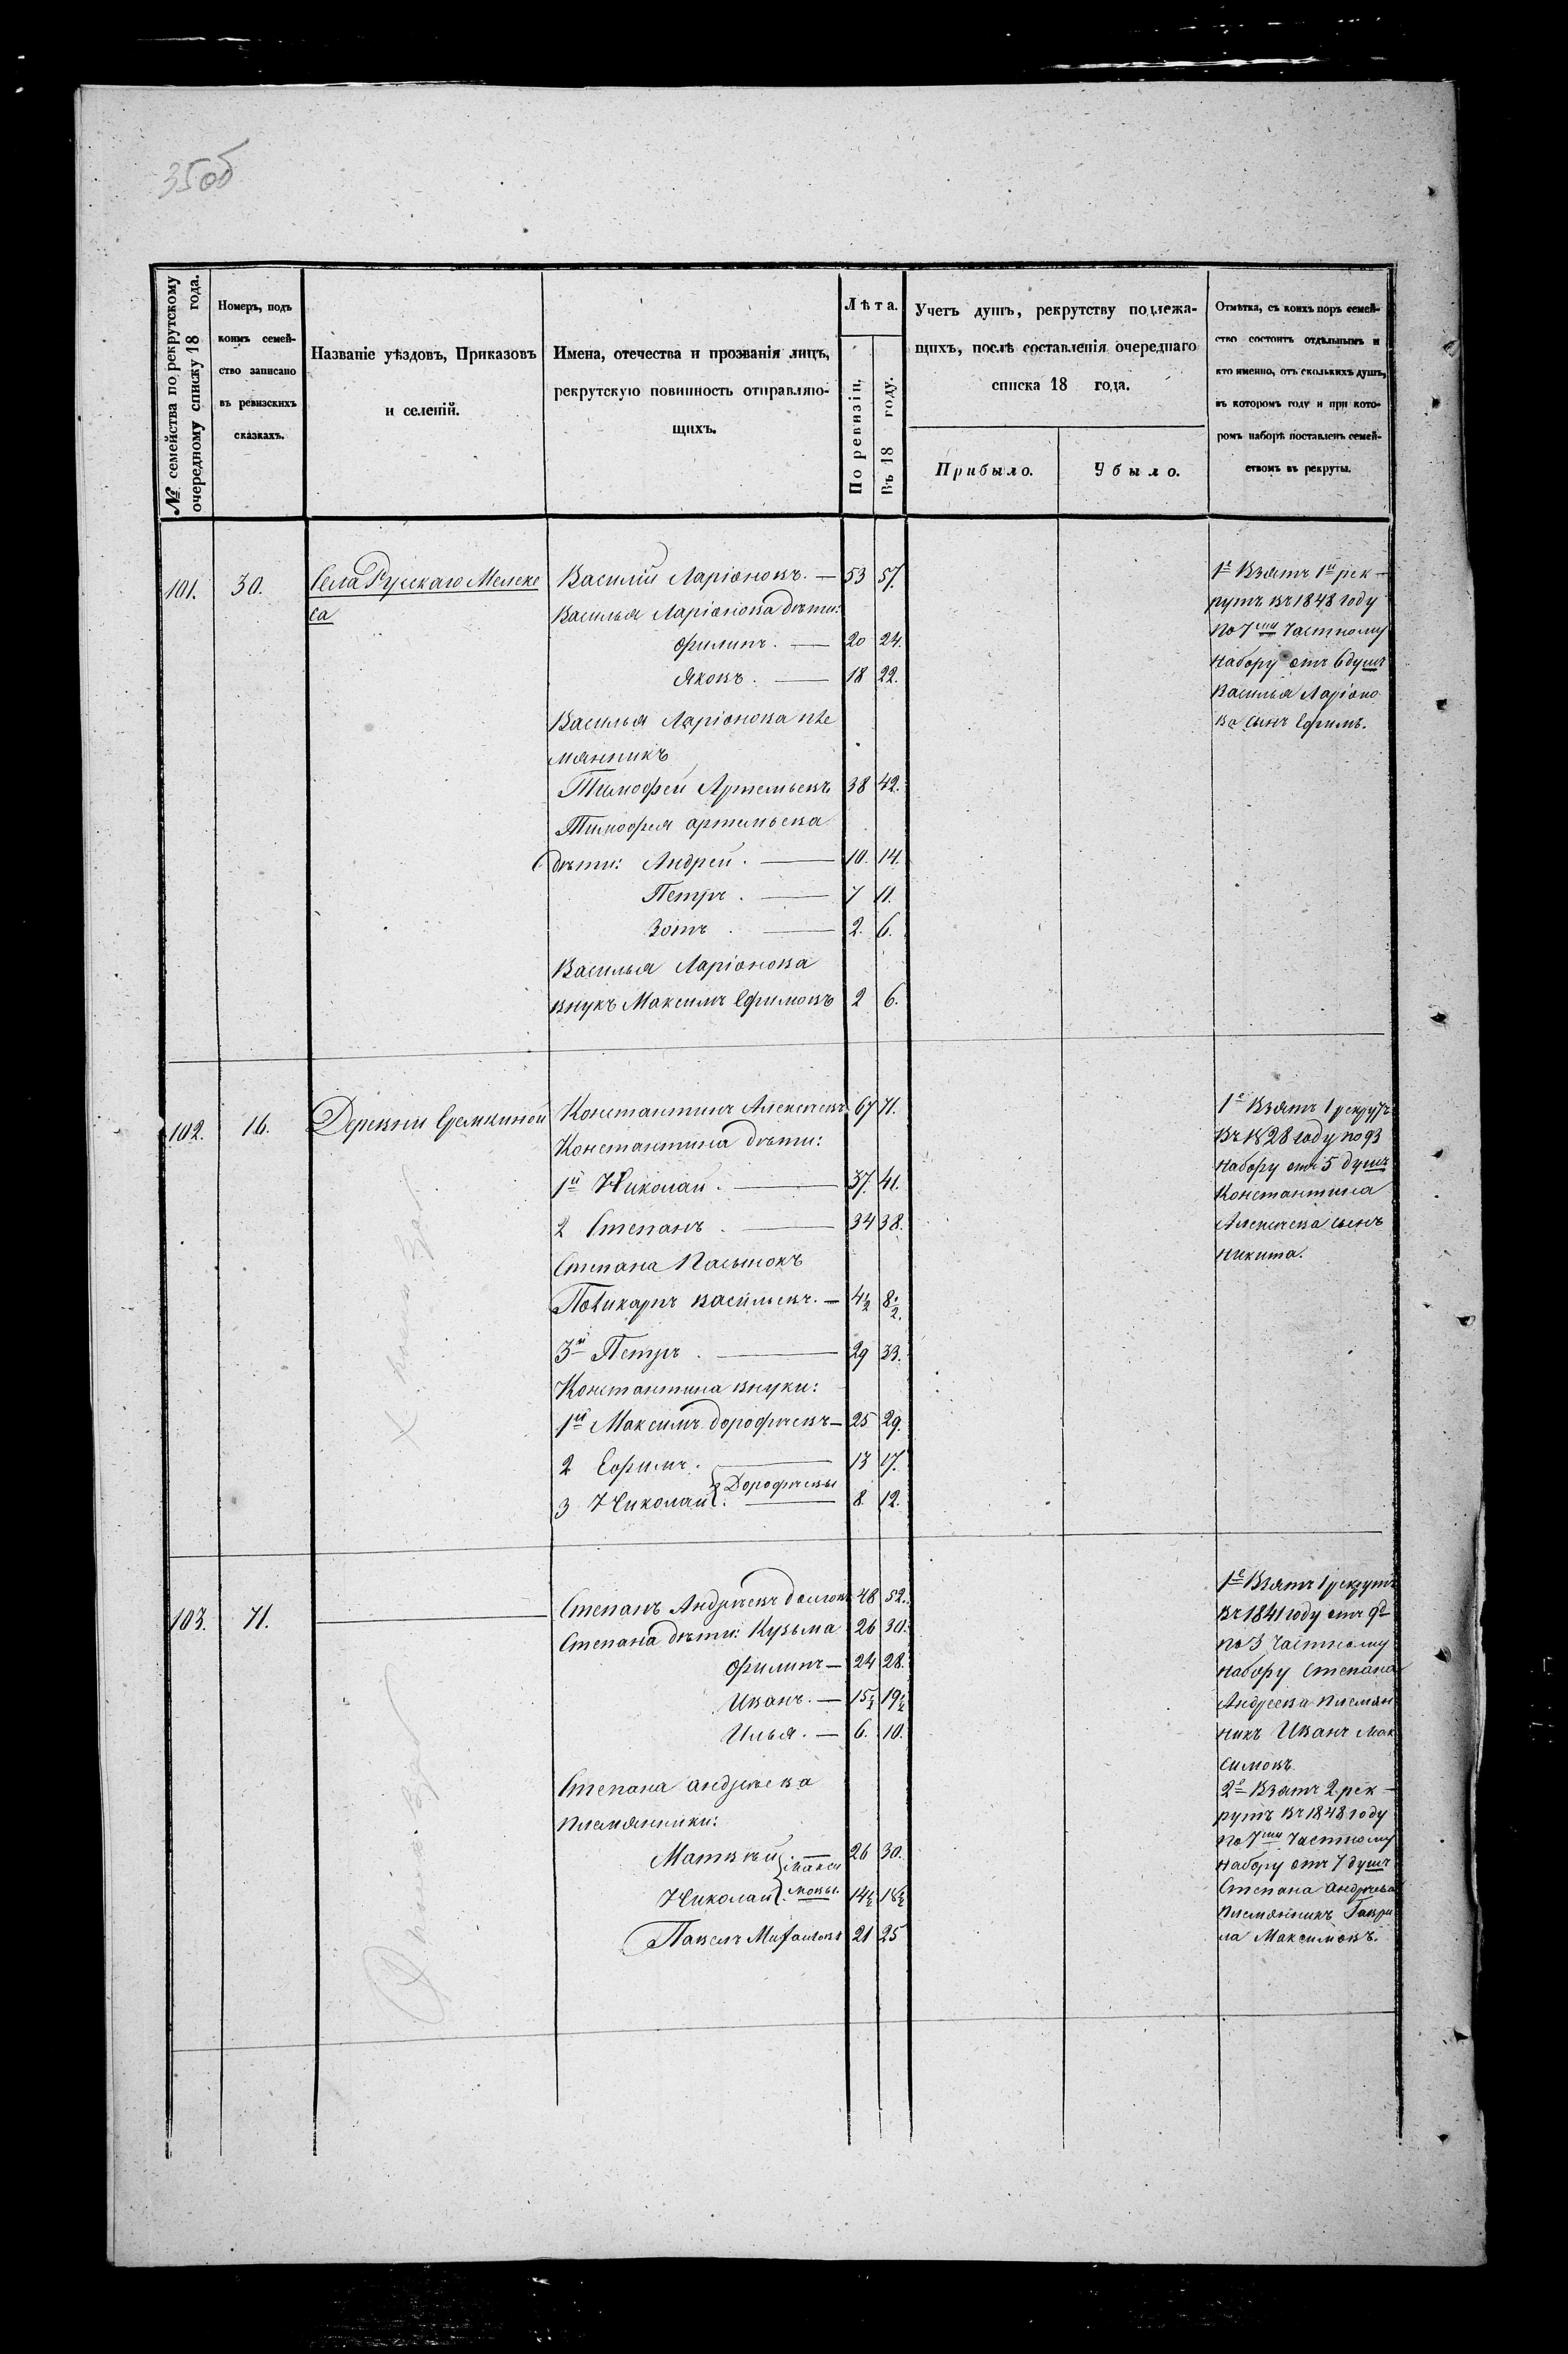 35об
№ семейства по рекрутскому
очередному списку 18 года.
Номеръ, подъ
коимъ семей-
ство записано
въ ревизскихъ
сказкахъ.
Названіе уѣздовъ, Приказовъ
и селеній.
Имена, отечества и прозванія лицъ,
рекрутскую повинность отправляю-
щихъ.
Лѣта.
По ревизіи.
Въ 18 году.
Учетъ душъ, рекрутству подлежа-
щихъ, послѣ составленія очереднаго
списка 18 года.
Прибыло.
Убыло.
Отмѣтка, съ коихъ поръ семей-
ство состоитъ отдѣльнымъ и
кто именно, отъ сколькихъ душъ,
въ которомъ году и при кото-
ромъ наборѣ поставленъ семей-
ствомъ въ рекруты.
101. 30. Села Русскаго Мелеке
са
Василій Ларіоновъ. — 53 57.
Василья Ларіонова дѣти:
Филипъ. — 20 24.
Яковъ. — 18 22.
Василья Ларіонова пле
мянникъ
Тимофей Артемьевъ 38 42.
Тимофея артемьева
дѣти: Андрей. — 10. 14.
Петръ. — 7 11.
Зотъ. — 2. 6.
Василья Ларіонова
внукъ Максимъ Ефимовъ 2 6.
1е Взятъ 1й рек-
рутъ въ 1848 году
по 7ми частному
набору отъ 6 душъ
Василья Ларіоно
ва сынъ Ефимъ.
102. 16. Деревни Еремкиной
Константинъ Алексѣевъ 67 71.
Константина дѣти:
1й Николай. — 37. 41.
2 Степанъ. — 34 38.
Степана Пасынокъ
Поликарпъ васильевъ. — 4½ 8½.
3й Петръ. — 29 33.
Константина внуки:
1й Максимъ дорофѣевъ — 25 29.
2 Ефимъ. — 13 17.
3 Николай. } Дорофѣевы 8 12.
1е Взятъ 1 рекрутъ
въ 1828 году по 93
набору отъ 5 душъ
Константина
Алексѣева сынъ
никита.
103. 71. —
Степанъ Андрѣевъ долговъ 48 52.
Степана дѣти: Кузьма 26 30.
Филипъ — 24 28.
Иванъ. — 15½ 19½
Илья. — 6. 10.
Степана андрѣева
племянники:
Матвѣй. — 26 30.
Николай. } Макси
мовы. 14½ 18½
Павелъ Михайловъ 21 25
1е Взятъ 1 рекрутъ
въ 1841 году отъ 9д
по 3 частному
набору Степана
Андреева племян
никъ Иванъ Мак
симовъ.
2е Взятъ 2 рек-
рутъ въ 1848 году
по 7ми частному
набору отъ 7 душъ
Степана андрѣева
племянникъ Гаври
ла Максимовъ.